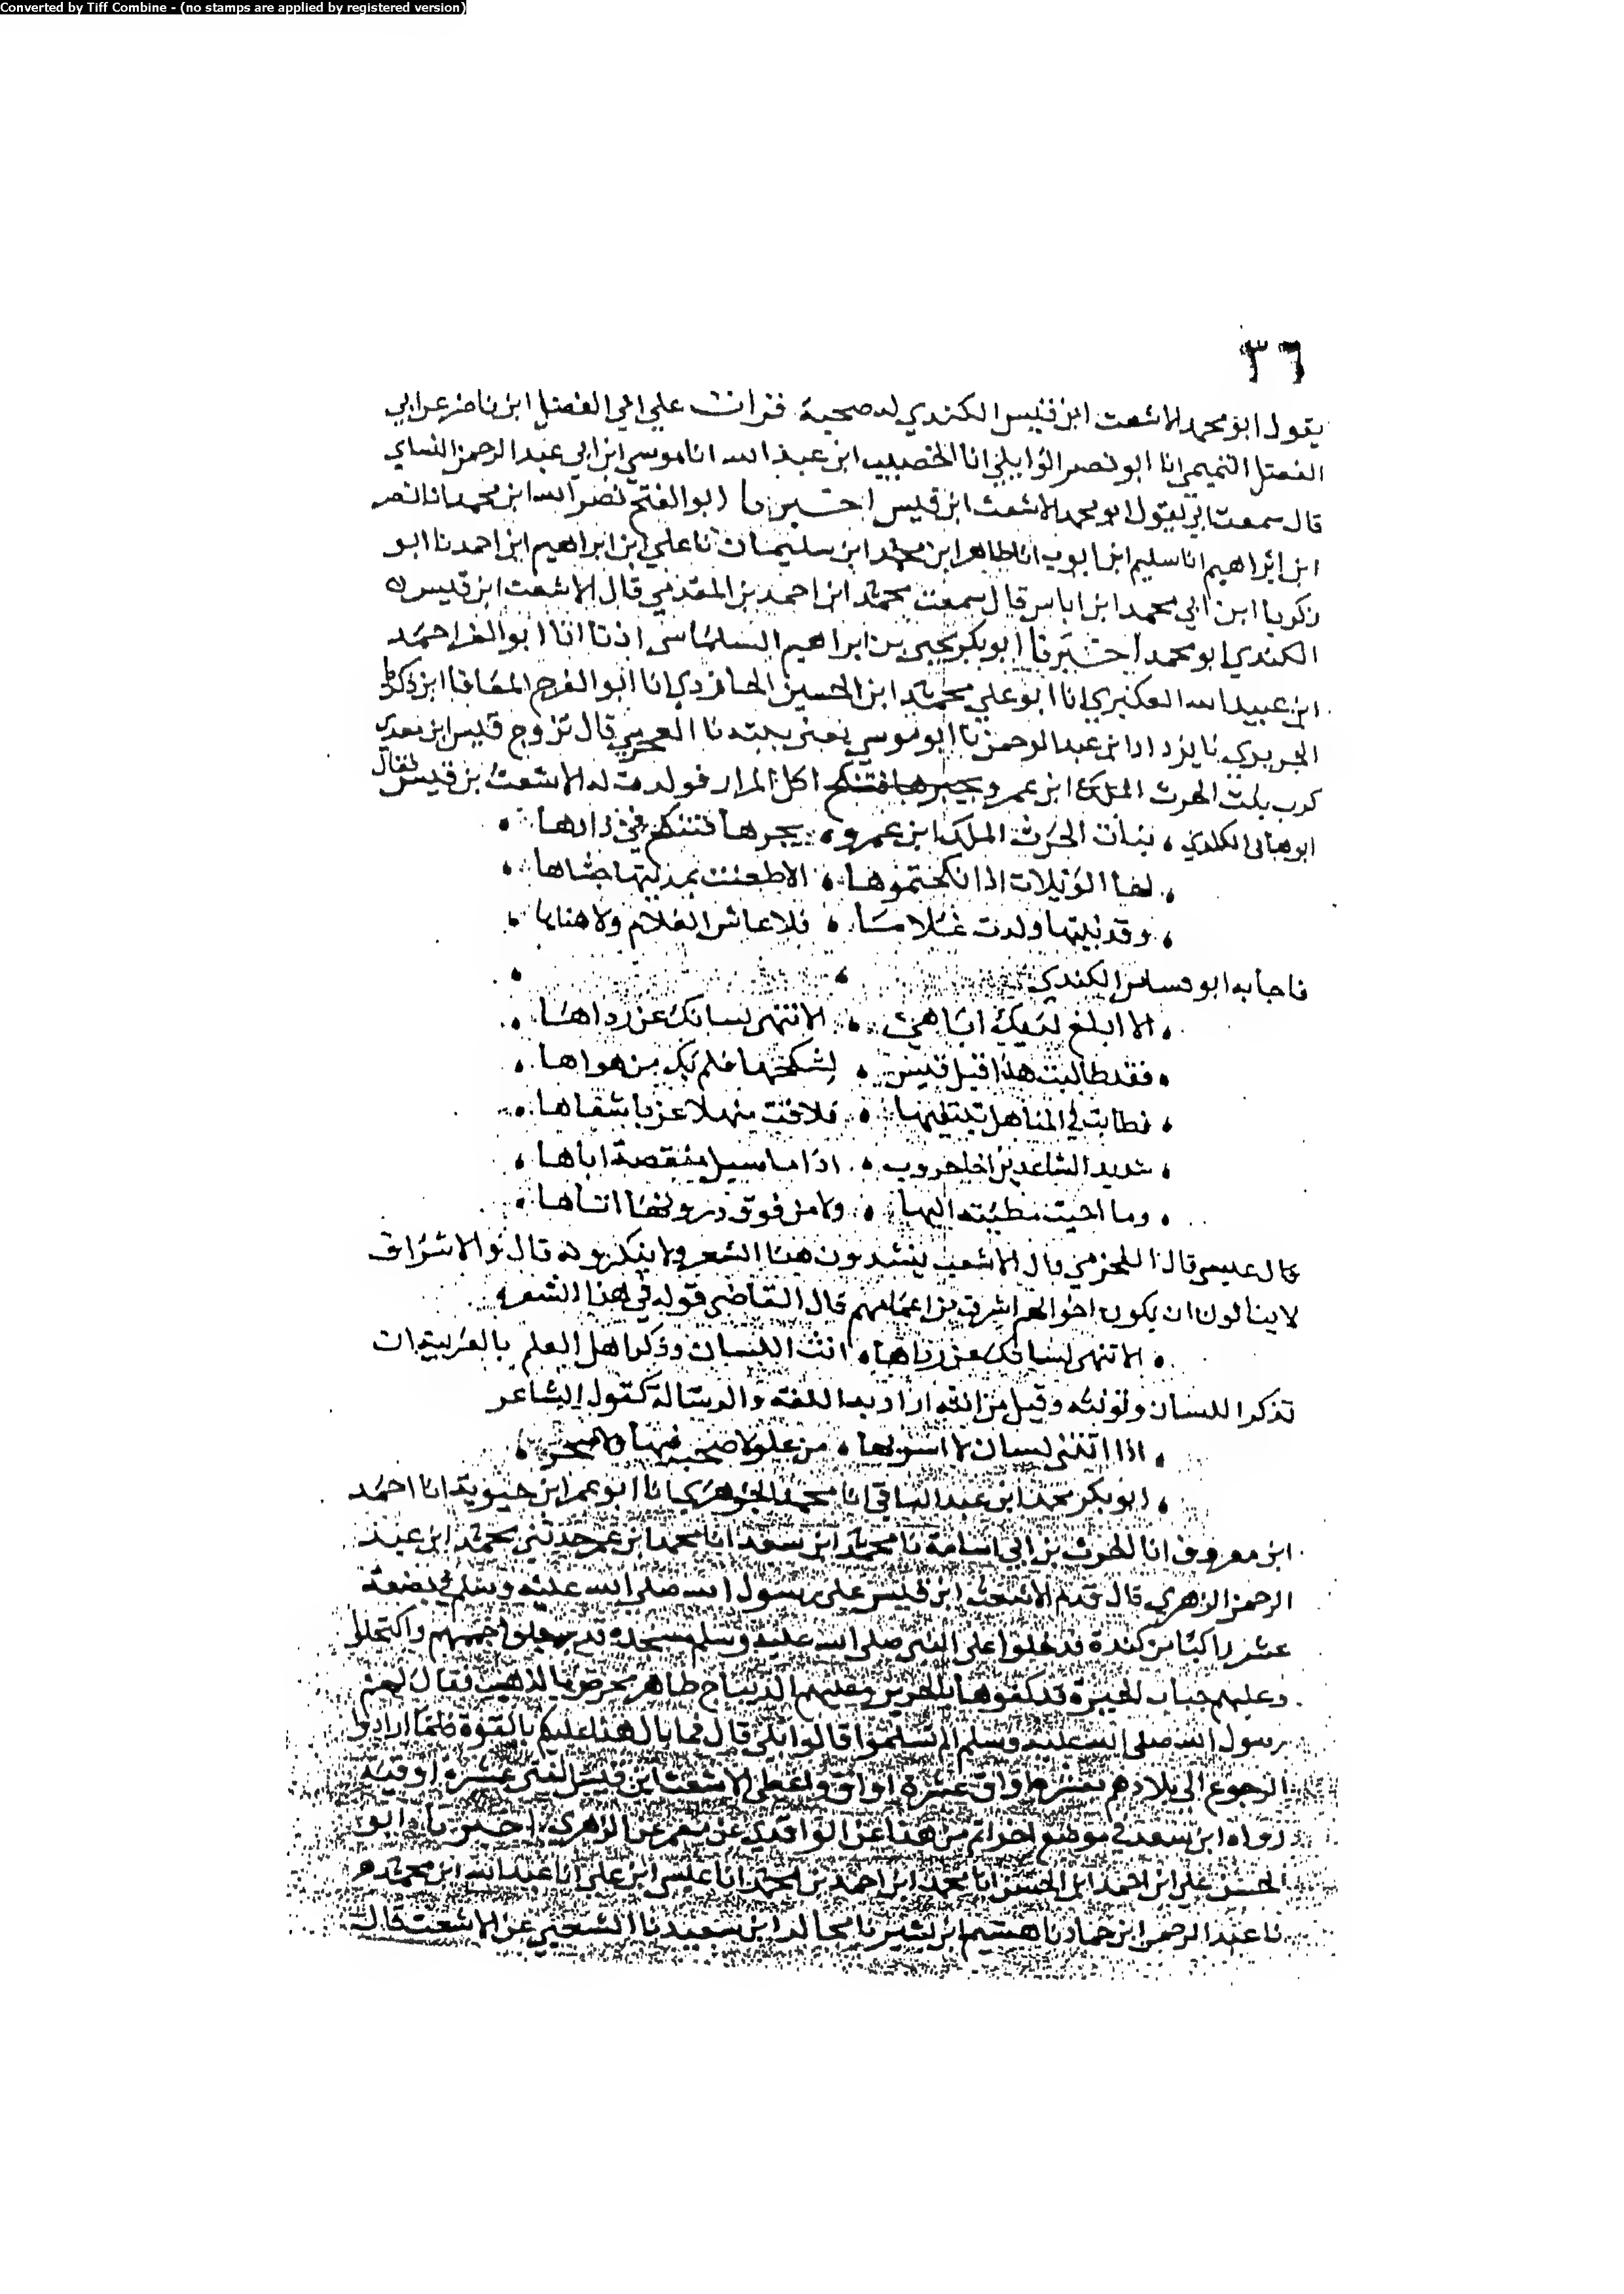 Converted by Tiff Combine - (no stamps are applied by registered version)
٣٦
يقول ابو محمد الاشعت ابن قيس الكندي له صحبة قرات علي ابي الفضل ابن ناصر عن ابي
الفضل التميمي انا ابو نصر الوايلي انا الخصيب ابن عبد الله انا موسي ابن ابي عبد الرحمن النساي
قال سمعت ابي يقول ابو محمد الاشعث ابن قيس اخبرنا ابو الفتح نصر الله ابن محمد انا نصر
ابن ابراهيم انا سليم ابن ايوب انا طاهر ابن محمد ابن سليمان نا علي ابن ابراهيم ابن احمد نا ابو
زكريا ابن ابي محمد ابن اياس قال سمعت محمد ابن احمد بن المقدمي قال الاشعت ابن قيس
الكندي ابو محمد اخبرنا ابو بكر يحيى بن ابراهيم السلماسي اذنا انا ابو العز احمد
ابن عبيد الله العكبري انا ابو علي محمد ابن الحسين الجازري انا ابو الفرج المعافا ابن زكريا
الجريري نا يزداد ابن عبد الرحمن نا ابو موسي يعني نا العمري قال تزوج قيس ابن معدي
كرب بنت الحرث الملك ابن عمرو اكل المرار فولدت له الاشعث بن قيس فقال
ابو هاني الكندي ، بنات الحرث الملك ابن عمرو ، فتنكح في ذراها ،
، لها الويلات اذا نكحتموها ، الا طعنت بمديتها حشاها ،
، وقد نبيتها ولدت غلاما ، فلا عاش الغلام ولا هناها ،
فاجابه ابو الكندي
، الا ابلغ لديك ابا هني ، الا تنهى لسانك عن رداها ،
، فقد طالبت هذا قبل قيس ، لتنكحها فلم تك من هواها ،
، في المناهل تبتغيها ، فلاقت منهلا عذبا شفاها ،
، شديد الساعدين اخا حروب ، اذا ما سيل منقصة اباها ،
، وما احيت مطيته اليها ، ولا من فوق ذروتها اتاها ،
قال عيسى قال المخزمي قال الاشعث ينشدون هذا الشعر ولا ينكرونه قال نوا الاشراف
لا يبالون ان يكون اخوالهم اشرف من اعمامهم قال القاضي قوله في هذا الشعر
، الا تنهى لسانك عن رداها ، انث اللسان وذكر اهل العلم بالعربية ان
تذكر اللسان وتونثه وقيل من انثه اراد به اللغة والرسالة كقول الشاعر
، اذا اتتني لسان لا اسر بها ، من علو لا منها ولا سخر ،
، ابو بكر محمد ابن عبد الباقي انا محمد الجوهري انا ابو عمر ابن حيوية انا احمد
ابن معروف انا الحرث بن ابي اسامة نا محمد ابن سعد انا محمد ابن عمر حدثني محمد ابن عبد
الرحمن الزهري قال قدم الاشعث ابن قيس على رسول الله صلى الله عليه وسلم في بضعة
عشر راكبا من كندة فدخلوا على النبي صلى الله عليه وسلم مسجده قد جممهم واكتحلوا
وعليهم جباب الحبرة قد كفوها بالحرير وعليهم الديباج ظاهر مخوص بالذهب فقال لهم
رسول الله صلى الله عليه وسلم الم تسلموا قالوا بلى قال فما بال هذا عليكم فالقوه فلما ارادوا
الرجوع الى بلادهم عشرة اواق واعطى الاشعت ابن قيس اثنتي عشرة اوقية
رواه ابن سعد في موضع اخر من هذا عن الواقدي عن معمر عن الزهري اخبرنا ابو
الحسن علي ابن احمد ابن الحسن انا محمد ابن احمد بن محمد انا عيسى ابن علي انا عبد الله ابن محمد
نا عبد الرحمن ابن حماد نا هشيم ابن بشير نا مجالد ابن سعيد نا الشعبي عن الاشعت قال